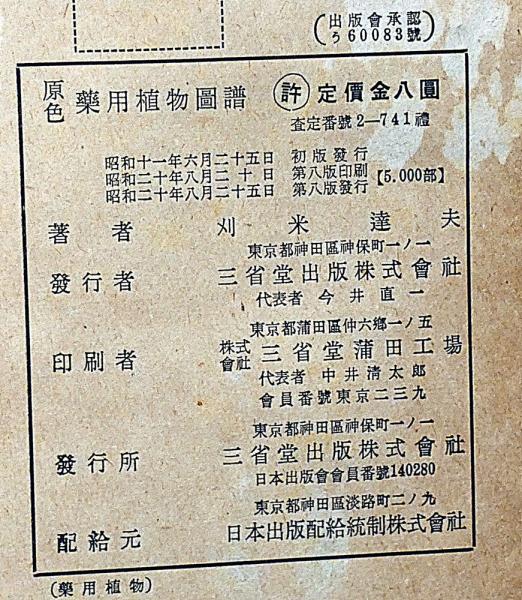 (出版會承認
ろ60083號)
原色 藥用植物圖譜 許 定價金八圓
査定番號2—741禮
昭和十一年六月二十五日 初版發行
昭和二十年八月二十日 第八版印刷
昭和二十年八月二十五日 第八版發行【5.000部】
著者 刈米達夫
東京都神田區神保町一ノ一
發行者 三省堂出版株式會社
代表者 今井直一
東京都蒲田區仲六郷一ノ五
印刷者 株式會社 三省堂蒲田工場
代表者 中井清太郎
會員番號東京二三九
東京都神田區神保町一ノ一
發行所 三省堂出版株式會社
日本出版會會員番號140280
東京都神田區淡路町二ノ九
配給元 日本出版配給統制株式會社
(藥用植物)